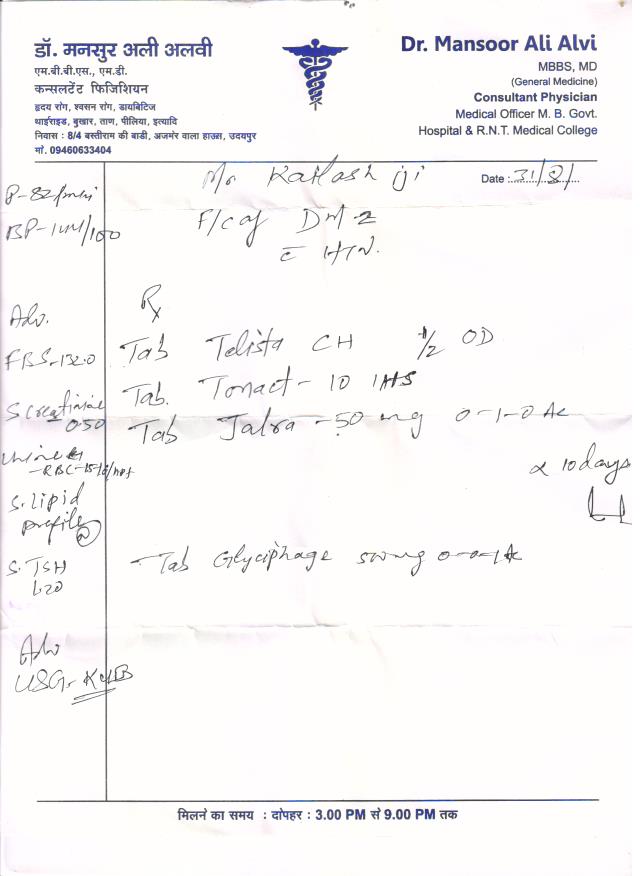 डॉ. मनसुर अली अलवी
एम.बी.बी.एस., एम.डी.
कन्सलटेंट फिजिशियन
हृदय रोग, श्वसन रोग, डायबिटिज
थाईराइड, बुखार, ताण, पीलिया, इत्यादि
निवास : 8/4 बस्तीराम की बाडी, अजमेर वाला हाउस, उदयपुर
मों. 09460633404
Dr. Mansoor Ali Alvi
MBBS, MD
(General Medicine)
Consultant Physician
Medical Officer M. B. Govt.
Hospital & R.N.T. Medical College
Mr Kailash ji
Date : 31/8/
P-82/min
BP-/100
F/c of DM-2
c̄ HTN.
Adv.
FBS-132.0
S creatinine
0.50
Urine
-RBC-15-16/hpf
S. lipid
profile
S. TSH
1.20
Adv
USG- KUB
Rx
Tab Telista CH 1/2 OD
Tab. Tonact-10 1HS
Tab Jalra-50 mg 0-1-0 Ac
x 10 days
Tab Glyciphage mg 0-0-1
मिलने का समय : दोपहर : 3.00 PM से 9.00 PM तक